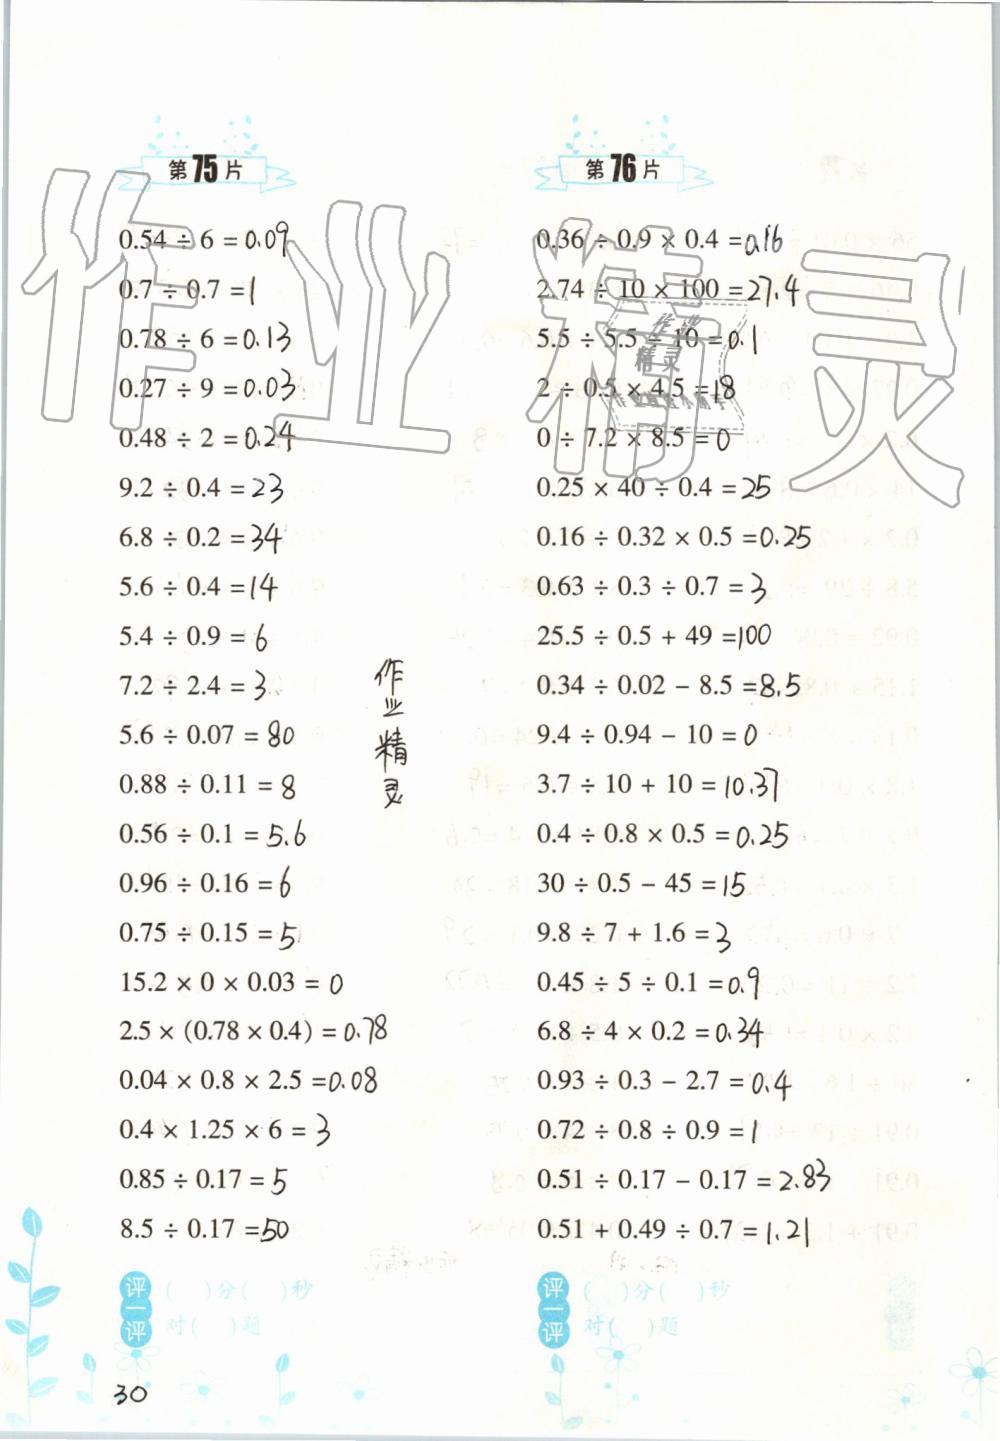 第75片
0.54 ÷ 6 = 0.09
0.7 ÷ 0.7 = 1
0.78 ÷ 6 = 0.13
0.27 ÷ 9 = 0.03
0.48 ÷ 2 = 0.24
9.2 ÷ 0.4 = 23
6.8 ÷ 0.2 = 34
5.6 ÷ 0.4 = 14
5.4 ÷ 0.9 = 6
7.2 ÷ 2.4 = 3
5.6 ÷ 0.07 = 80
0.88 ÷ 0.11 = 8
0.56 ÷ 0.1 = 5.6
0.96 ÷ 0.16 = 6
0.75 ÷ 0.15 = 5
15.2 × 0 × 0.03 = 0
2.5 × (0.78 × 0.4) = 0.78
0.04 × 0.8 × 2.5 = 0.08
0.4 × 1.25 × 6 = 3
0.85 ÷ 0.17 = 5
8.5 ÷ 0.17 = 50
评一评
( )分( )秒
对( )题
作业精灵
第76片
0.36 ÷ 0.9 × 0.4 = 0.16
2.74 ÷ 10 × 100 = 27.4
5.5 ÷ 5.5 ÷ 10 = 0.1
2 ÷ 0.5 × 4.5 = 18
0 ÷ 7.2 × 8.5 = 0
0.25 × 40 ÷ 0.4 = 25
0.16 ÷ 0.32 × 0.5 = 0.25
0.63 ÷ 0.3 ÷ 0.7 = 3
25.5 ÷ 0.5 + 49 = 100
0.34 ÷ 0.02 − 8.5 = 8.5
9.4 ÷ 0.94 − 10 = 0
3.7 ÷ 10 + 10 = 10.37
0.4 ÷ 0.8 × 0.5 = 0.25
30 ÷ 0.5 − 45 = 15
9.8 ÷ 7 + 1.6 = 3
0.45 ÷ 5 ÷ 0.1 = 0.9
6.8 ÷ 4 × 0.2 = 0.34
0.93 ÷ 0.3 − 2.7 = 0.4
0.72 ÷ 0.8 ÷ 0.9 = 1
0.51 ÷ 0.17 − 0.17 = 2.83
0.51 + 0.49 ÷ 0.7 = 1.21
评一评
( )分( )秒
对( )题
作业精灵
作业
精灵
30